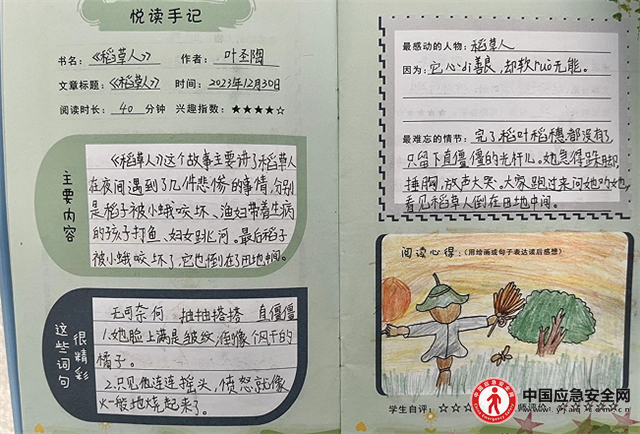 悦读手记
书名：《稻草人》 作者：叶圣陶
文章标题：《稻草人》 时间：2023年12月30日
阅读时长：40 分钟 兴趣指数：★★★★☆
主要内容
《稻草人》这个故事主要讲了稻草人
在夜间遇到了几件悲惨的事情，分别
是稻子被小蛾咬坏、渔妇带着生病
的孩子打鱼、妇女跳河。最后稻子
被小蛾咬坏了，它也倒在了田地中间。
这些词句很精彩
无可奈何 抽抽搭搭 直僵僵
1.她脸上满是皱纹，倒像个风干的
橘子。
2.只见他连连摔头，愤怒就像
火一般地烧起来了。
最感动的人物：稻草人
因为：它心di善良，却软ruò无能。
最难忘的情节：完了稻叶稻穗都没有了，
只留下直僵僵的光杆儿。她急得跺脚，
捶胸，放声大哭。大家跑过来问她劝她，
看见稻草人倒在田地中间。
阅读心得：（用绘画或句子表达读后感想）
学生自评：☆☆☆
师评价：
中国应急安全网